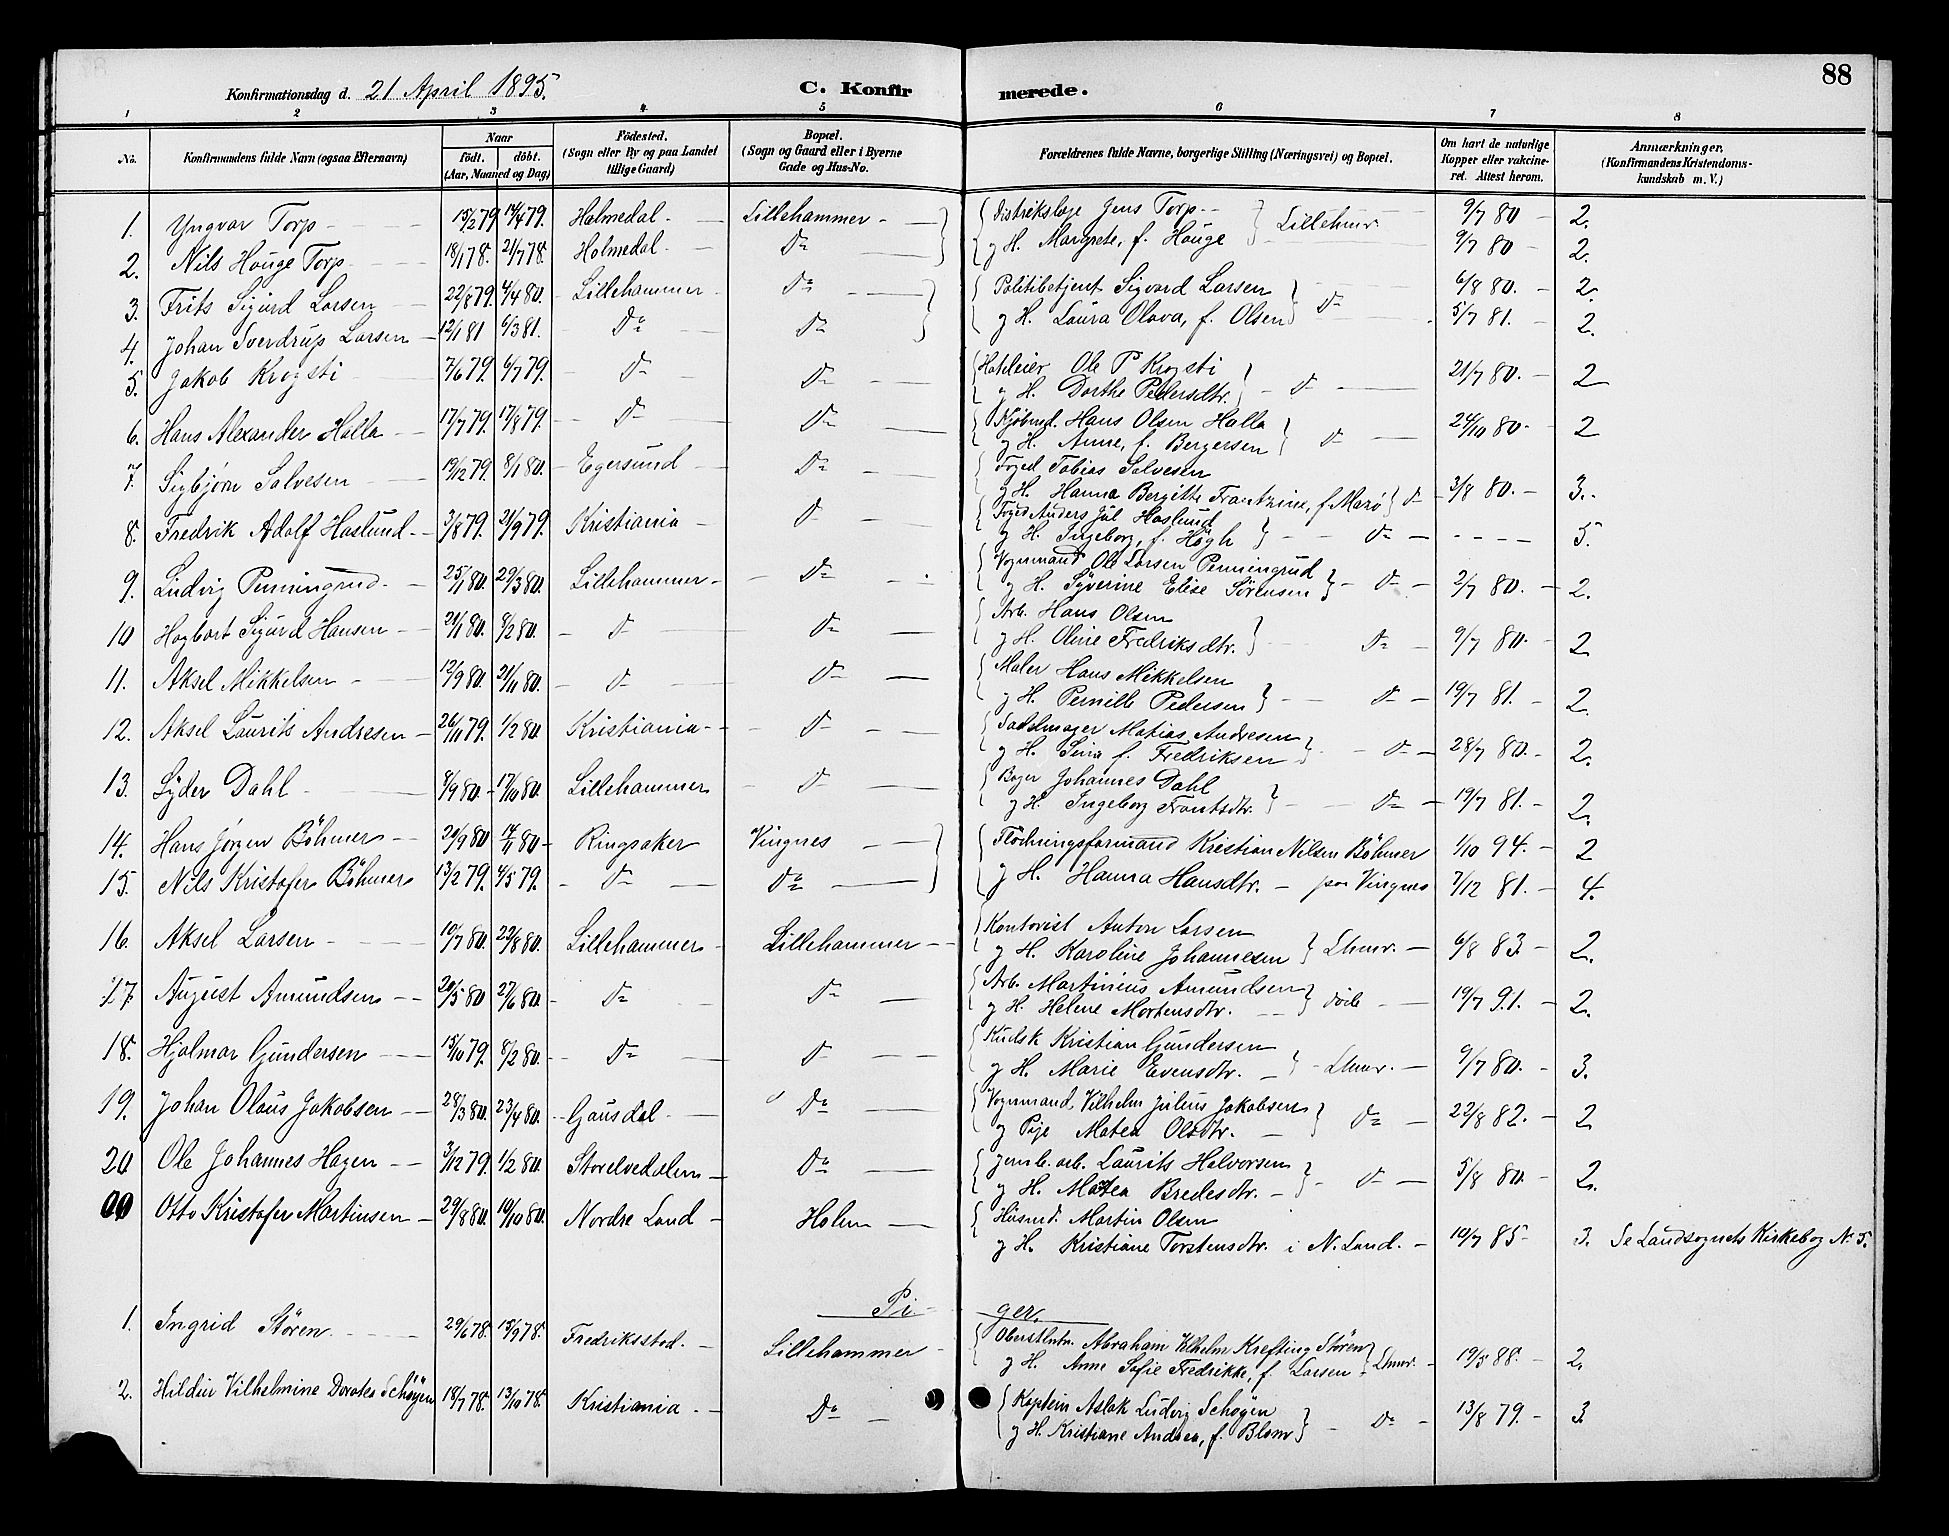 88
Konfirmationsdag d. 21 April 1895. C. Konfirmerede.
1 2 3 4 5 6 7 8
No. Konfirmandens fulde Navn (ogsaa Efternavn) Naar födt. döbt. (Aar, Maaned og Dag) Födested. (Sogn eller By og paa Landet tillige Gaard) Bopæl. (Sogn og Gaard eller i Byerne Gade og Hus-No. Forældrenes fulde Navne, borgerlige Stilling (Næringsvei) og Bopæl. Om havt de naturlige Kopper eller vakcineret. Attest herom. Anmærkninger. (Konfirmandens Kristendomskundskab m. V.)
1. Yngvar Torp 15/2 79 14/4 79. Holmedal. Lillehammer Distriktslæge Jens Torp Lillehmr. 9/7 80 2.
2. Nils Houge Torp 18/1 78. 21/7 78. Holmedal. Do g H. Margrete, f. Houge 9/7 80 2.
3. Frits Sigurd Larsen 22/8 79. 4/4 80. Lillehammer Do Politibetjent Sigvard Larsen 6/8 80. 2.
4. Johan Sverdrup Larsen 12/1 81 6/3 81. Do Do g H. Laura Olava, f. Olsen Do 5/7 81. 2.
5. Jakob Krogsti 7/6 79. 6/7 79. Do Do Hoteleier Ole P Krogsti
g H. Dorthe Pedersdtr. Do 21/7 80. 2
6. Hans Alexander Halla 17/7 79. 17/8 79. Do Do Kjøbmd. Hans Olsen Halla
g H. Anne, f. Bergersen Do 24/10 80. 2
7. Sigbjørn Salvesen 19/12 79. 8/1 80. Egersund Do Foged Tobias Salvesen
g H. Hanna Bergitte Frantzine, f. Marø Do 3/8 80. 3.
8. Fredrik Adolf Haslund 3/8 79. 21/9 79. Kristiania Do Foged Anders Jul Haslund
g H. Ingeborg, f. Høgh Do 5.
9. Ludvig Penningrud 25/1 80. 29/3 80. Lillehammer Do Vognmand Ole Larsen Penningrud
g H. Syverine Elise Sørensen Do 2/7 80. 2.
10 Hagbart Sigurd Hansen 21/1 80. 8/2 80. Do Do Arb. Hans Olsen
g H. Oline Fredriksdtr. Do 9/7 80. 2
11. Aksel Mikkelsen 12/9 80. 21/11 80. Do Do Maler Hans Mikkelsen
g H. Pernille Pedersen Do 19/7 81. 2.
12. Aksel Laurits Andresen 26/11 79. 1/2 80. Kristiania Do Sadelmager Matias Andresen
g H. Sina f. Fredriksen Do 28/7 80. 2.
13. Syder Dahl 8/9 80. 17/10 80. Lillehammer Do Bager Johannes Dahl
g H. Ingeborg Frantsdtr. Do 19/7 81. 2.
14. Hans Jørgen Böhmer 20/9 80 14/11 80 Ringsaker Vingnes Flödningsformand Kristian Nilsen Böhmer 1/10 94. 2
15. Nils Kristofer Böhmer 13/2 79. 4/5 79. Do Do g H. Hanna Hansdtr. paa Vingnes 7/12 81. 4.
16. Aksel Larsen 10/7 80. 22/8 80. Lillehammer Lillehammer Kontorist Anton Larsen
g H. Karoline Johannesen Lhmr. 6/8 83. 2.
17 August Amundsen 20/5 80 27/6 80. Do Do Arb. Martinius Amundsen
g H. Helene Mortensdtr. 19/7 91. 2.
18. Hjalmar Gundersen 15/10 79. 8/2 80. Do Do Kudsk Kristian Gundersen
g H. Marie Evensdtr. Lhmr. 9/7 80. 3.
19. Johan Olaus Jakobsen 28/3 80. 23/4 80. Gausdal Do Vognmand Vilhelm Julius Jakobsen
g Pige Matea Olsdtr. Do 22/8 82. 2
20 Ole Johannes Hagen 3/12 79. 1/2 80. Storelvedalen Do Jernb. arb. Laurits Halvorsen
g H. Matea Bredesdtr. Do 5/8 80. 2.
00 Otto Kristofer Martinsen 29/8 80. 19/10 80. Nordre Land Holm Husmd. Martin Olsen
g H. Kristiane Torstensdtr. i N. Land. 10/7 85 3. Se Landsognets Kirkebog No 5.
Piger.
1. Ingrid Stören 29/6 78. 15/9 78. Fredriksstad. Lillehammer Oberstlntn. Abraham Vilhelm Krefting Stören
g H. Anne Sofie Fredrikke, f. Larsen Lhmr. 19/5 88. 2.
2. Hildur Vilhelmine Dorotea Schøyen 18/7 78. 13/10 78. Kristiania Do Kaptein Aslak Ludvig Schøyen
g H. Kristiane Andrea, f. Blom Do 13/8 79. 3.